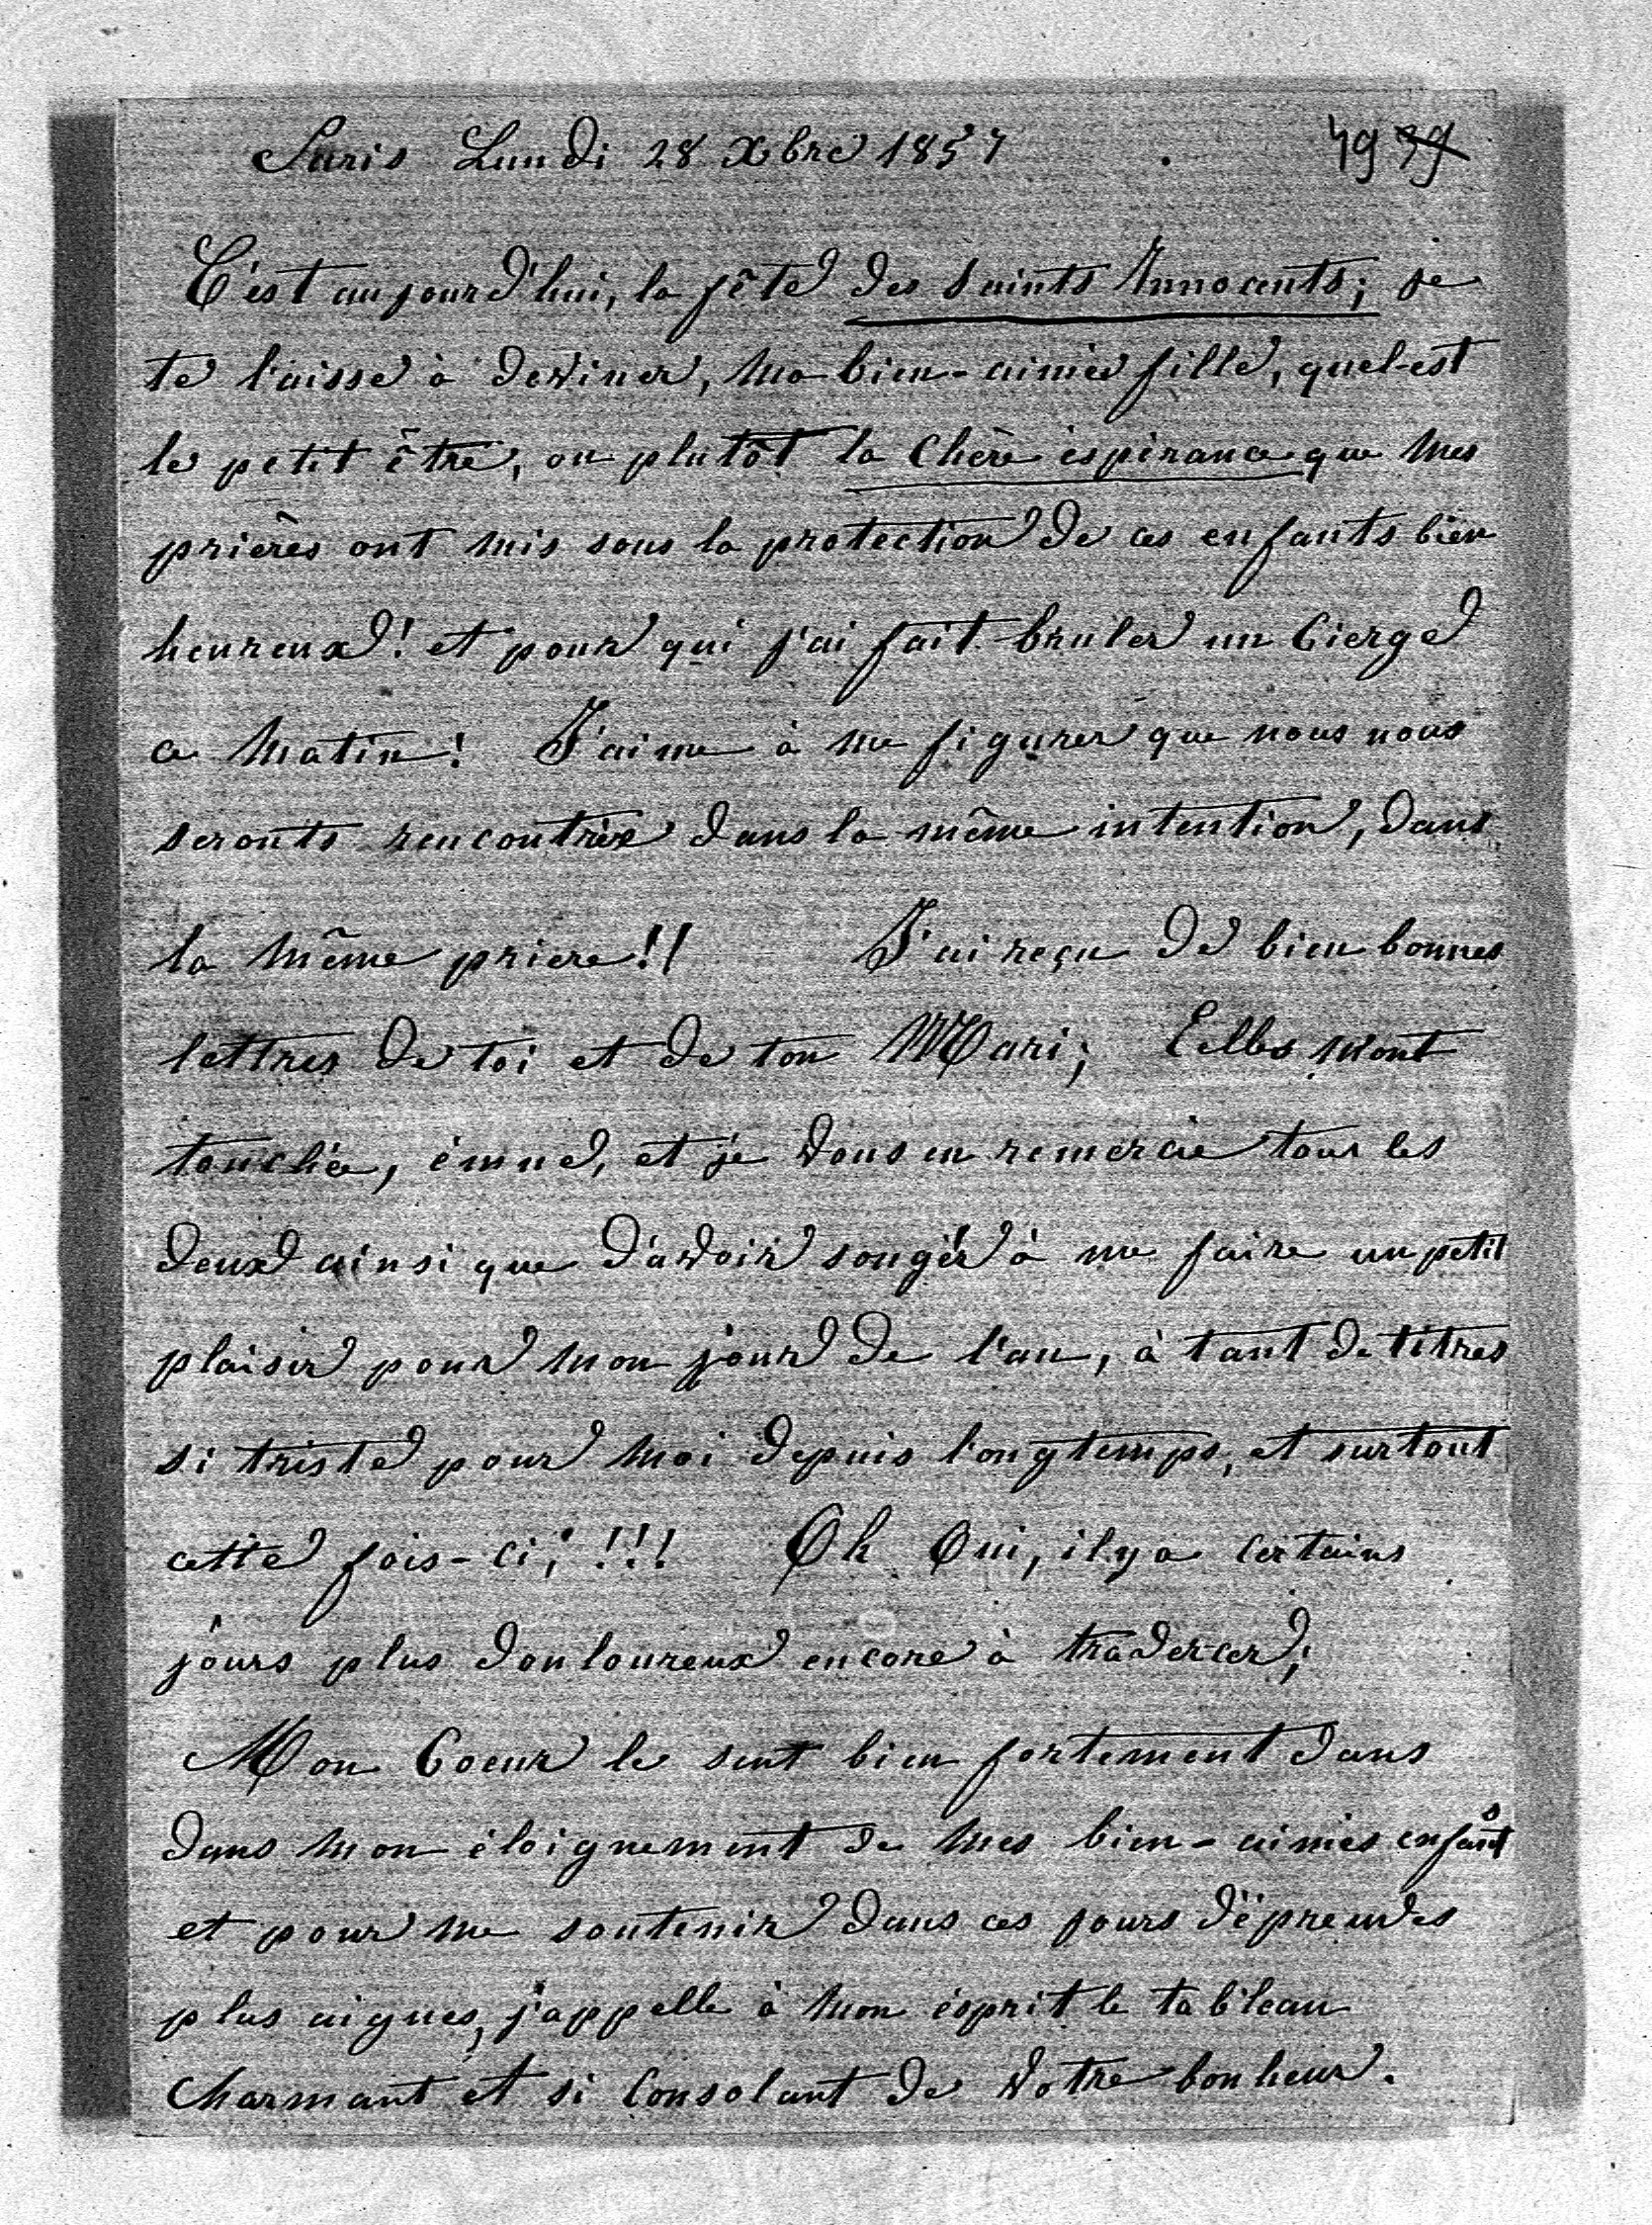 Paris Lundi 28 Xbre 1857 . 49 39
C'est aujourd'hui, la fête des saints Innocents; je
te l'aisse à deviner, ma bien-aimée fille, quel-est
le petit être, ou plutôt la Chère éspérance que mes
prières ont mis sous la protection de ces enfants bien
heureux! et pour qui j'ai fait bruler un Cierge
ce matin! J'aime à me figurer que nous nous
seronts rencontrée dans la même intention, dans
la même priere!! J'ai reçu de bien bonnes
lettres de toi et de ton Mari; Elles m'ont
touchée, émue, et je vous en remercie tous les
deux ainsi que d'avoir songér à me faire un petit
plaisir pour mon jour de l'an, à tant de titres
si triste pour moi depuis longtemps, et surtout
cette fois-ci, !!! Oh Oui, il y a certains
jours plus douloureux encore à traverser;
Mon Coeur le sent bien fortement dans
dans mon éloignement de mes bien-aimés enfants
et pour me soutenir dans ces jours d'épreuves
plus aigues, j'appelle à mon ésprit le tableau
Charmant et si Consolant de Votre bonheur.